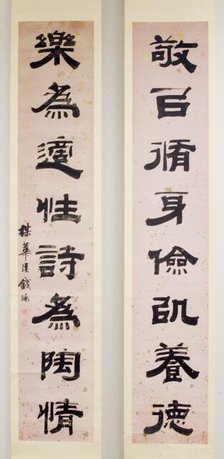 敬㠯脩身儉㠯養德
樂為適性詩為陶情
楳華溪錢泳